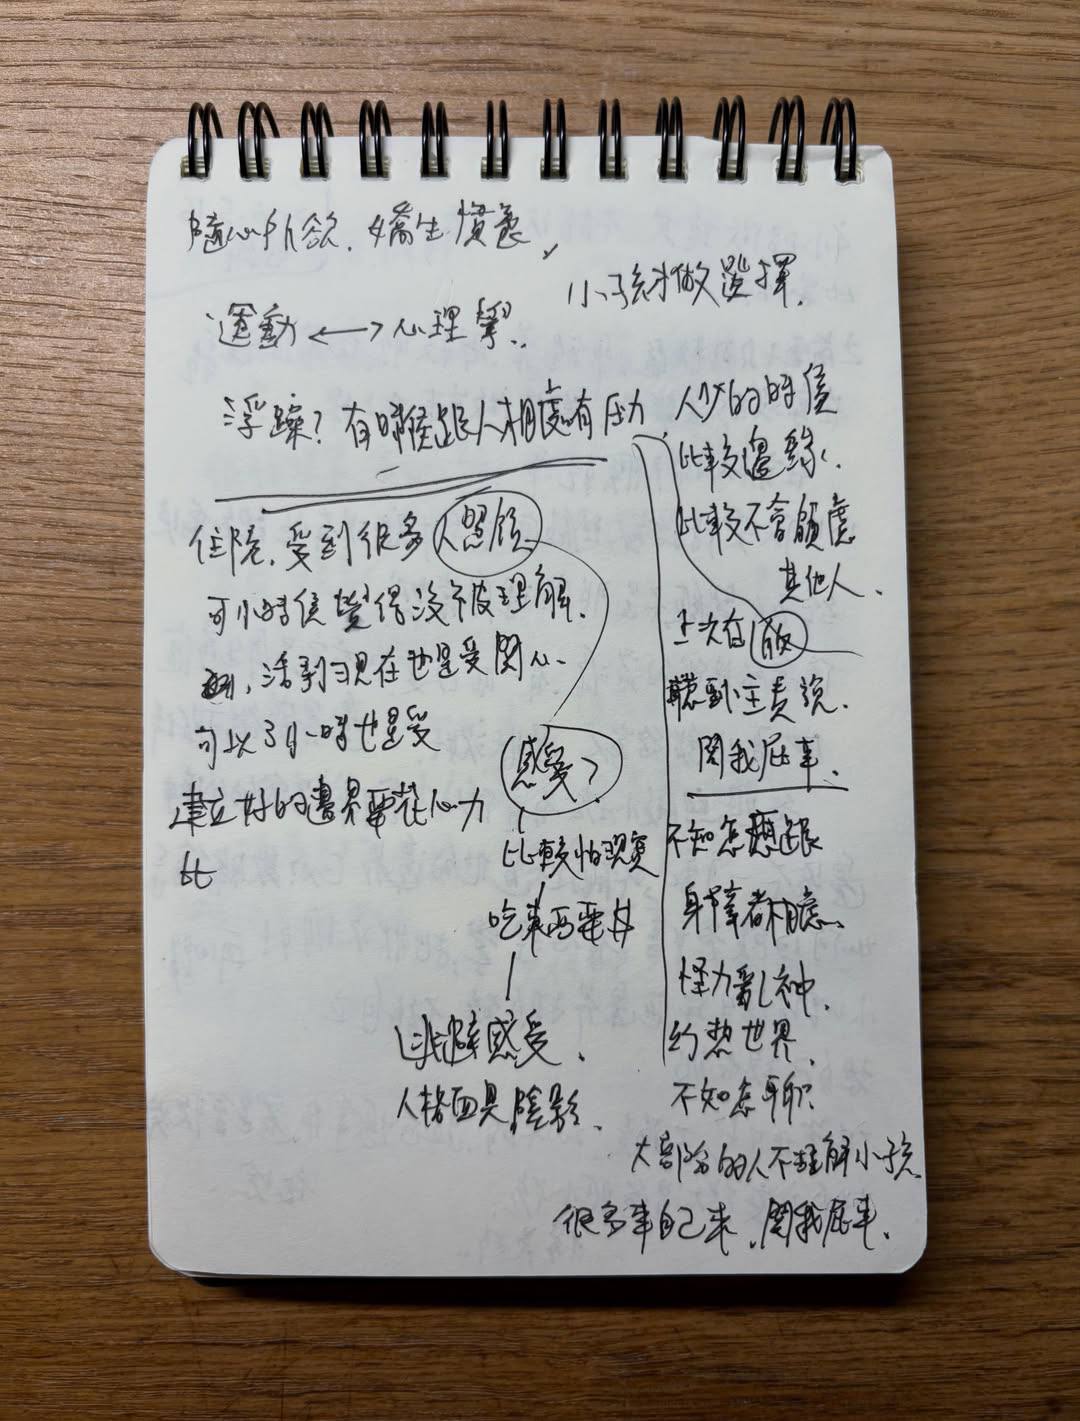 隨心所欲、嬌生慣養、
小孩才做選擇、
運動 ←→ 心理學、
浮躁？有時候跟人相處有压力
人少的時候
比較邊緣、
比較不會顧慮
其他人、
上次在
聽到主責說、
關我屁事、
不知怎麼跟
身障者相處、
怪力亂神、
幻想世界、
不知怎聊
大部分的人不理解小孩
很多事自己來、關我屁事、
住院、受到很多人照顧
可小時候覺得沒有被理解、
活到現在也是受關心、
可以了小時也是受
建立好的邊界要花心力
比
感受？
比較怕現實
吃東西要
逃避感受、
人格面具陰影、